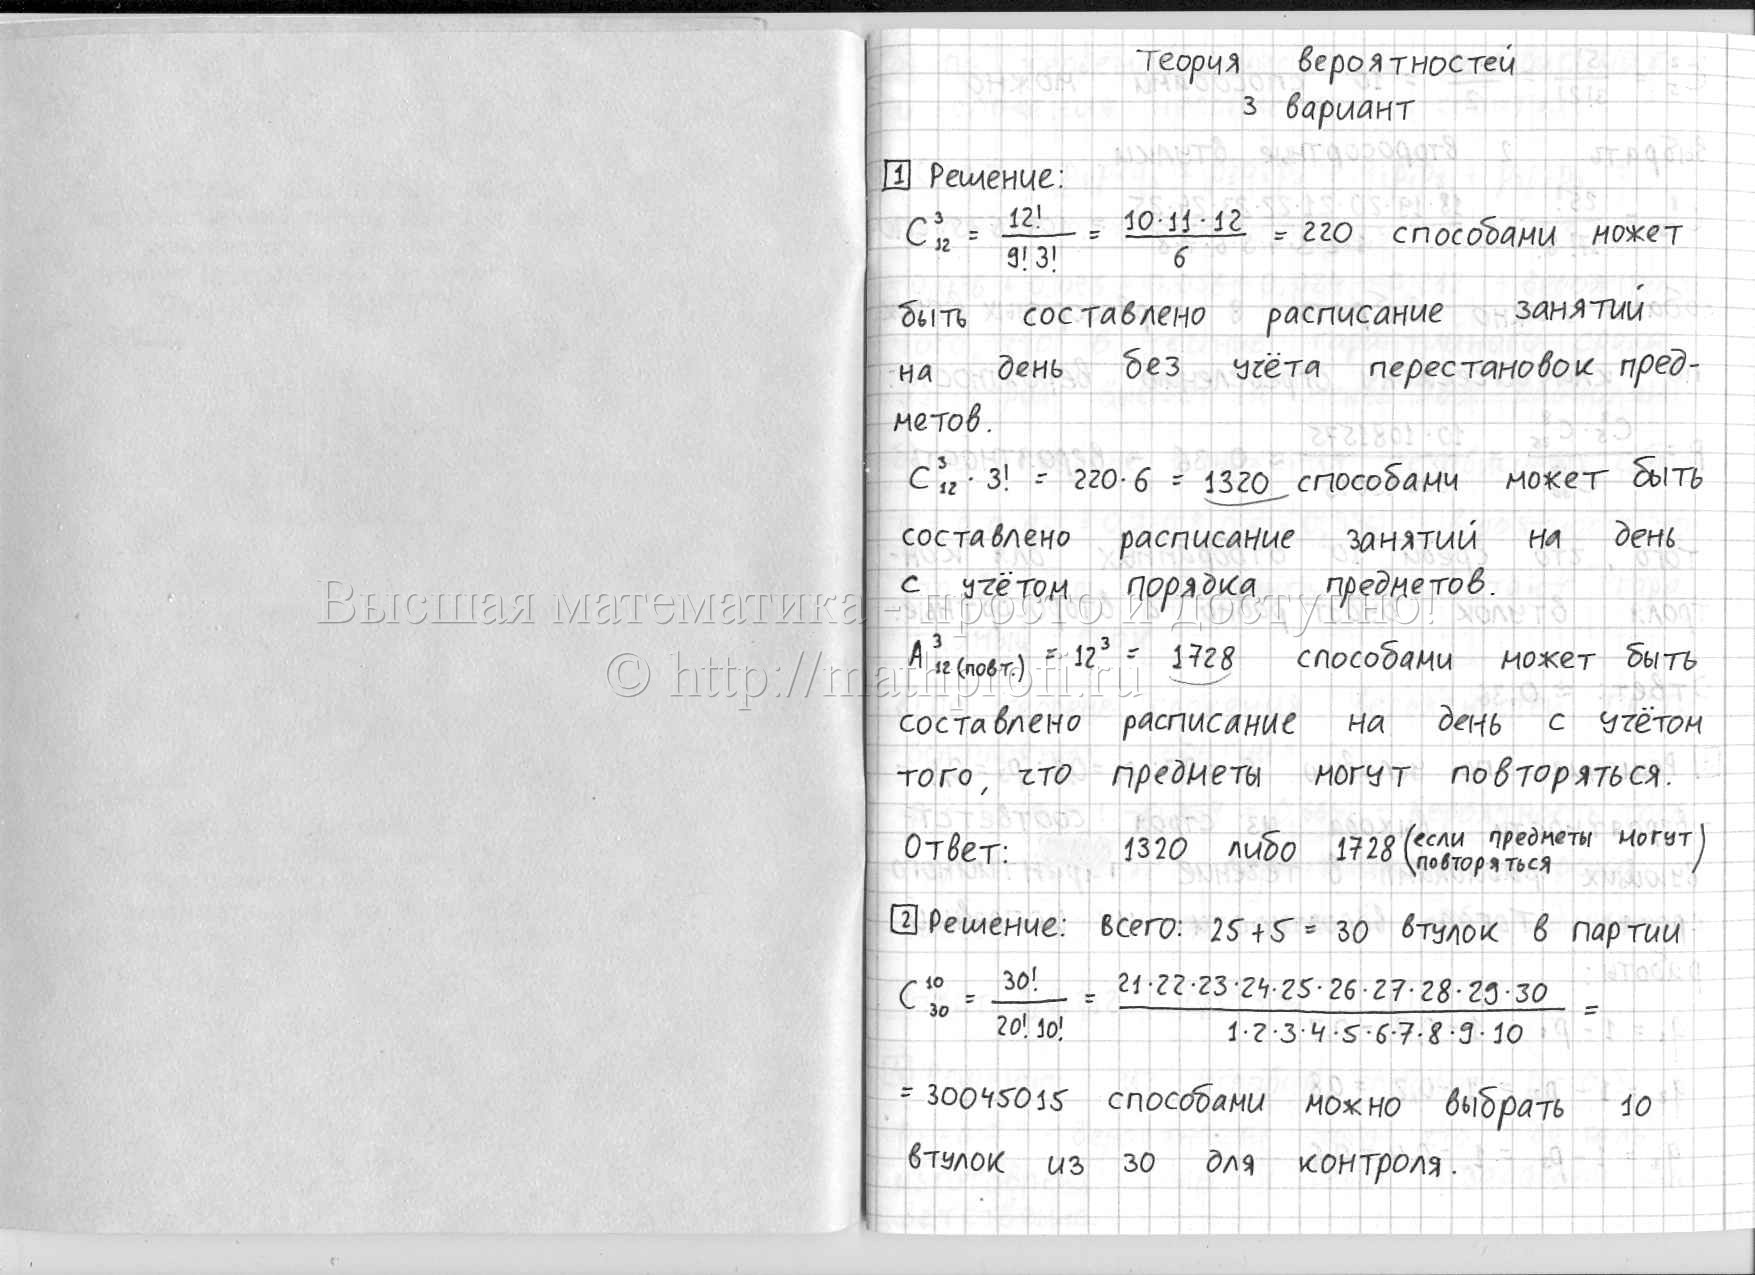 Теория вероятностей
3 вариант
1 Решение:
C³₁₂ = 12!/(9! 3!) = (10·11·12)/6 = 220 способами может
быть составлено расписание занятий
на день без учёта перестановок пред-
метов.
C³₁₂ · 3! = 220·6 = 1320 способами может быть
составлено расписание занятий на день
с учётом порядка предметов.
Высшая математика - просто и доступно!
A³₁₂ (повт.) = 12³ = 1728 способами может быть
© http://mathprofi.ru
составлено расписание на день с учётом
того, что предметы могут повторяться.
Ответ: 1320 либо 1728 (если предметы могут повторяться)
2 Решение: всего: 25+5 = 30 втулок в партии
C¹⁰₃₀ = 30!/(20! 10!) = (21·22·23·24·25·26·27·28·29·30)/(1·2·3·4·5·6·7·8·9·10) =
= 30045015 способами можно выбрать 10
втулок из 30 для контроля.